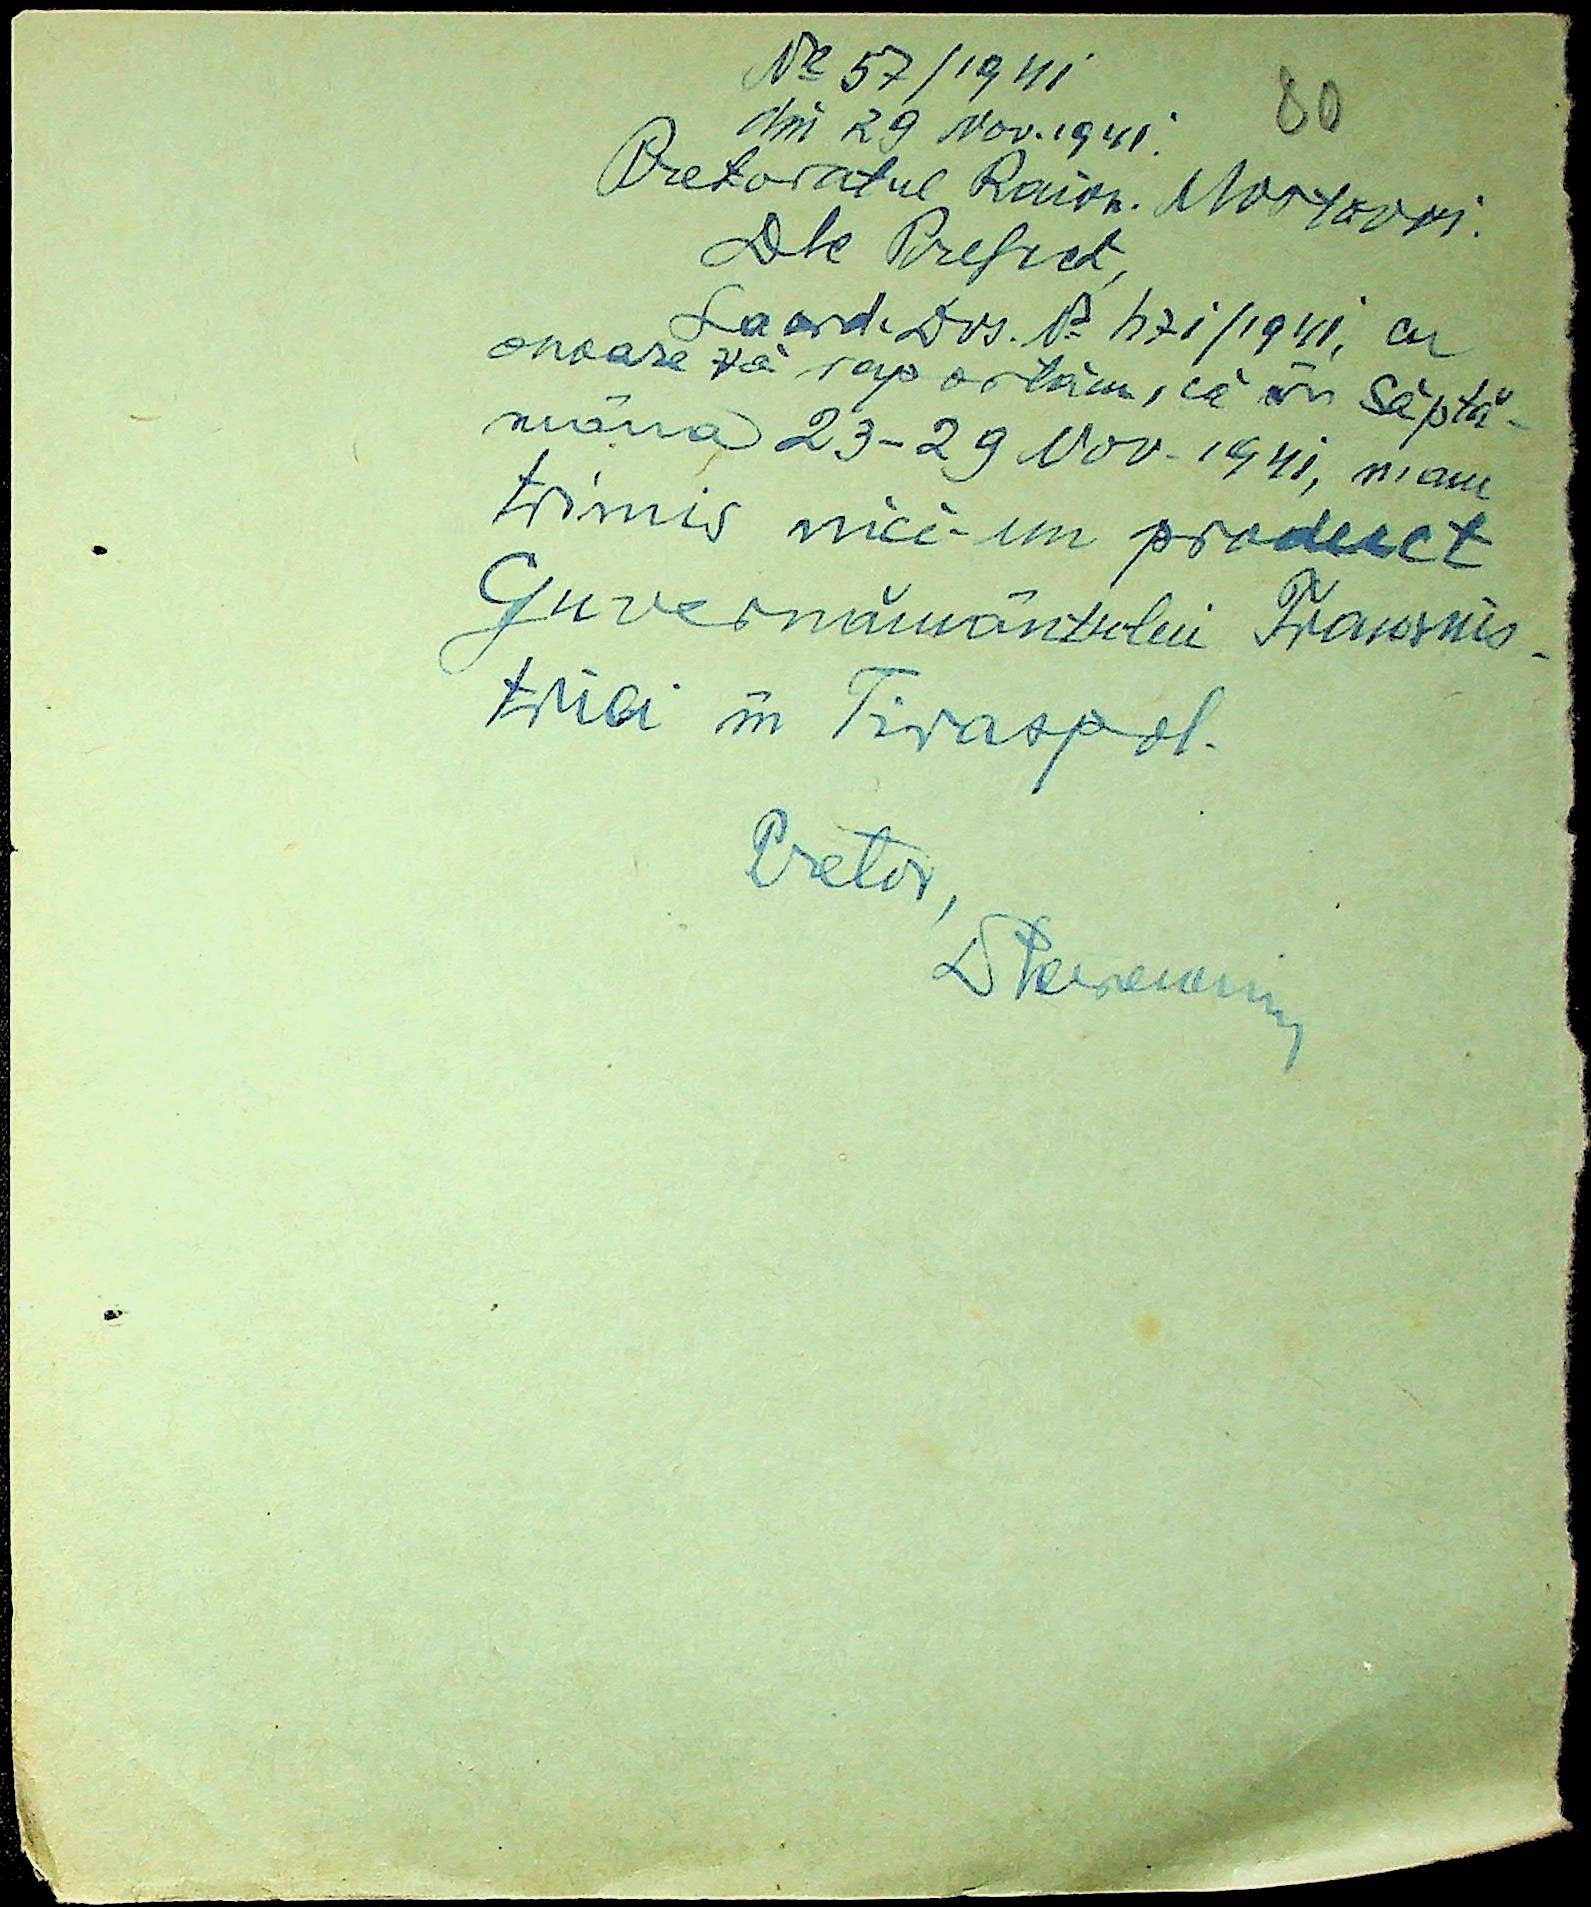 № 57/1941
80
din 29 Nov. 1941.
Pretoratul Raion. Mostovoi.
Dle Prefect,
La ord. Dvs. № /1941, cu
onoare vă raportăm, că în Săptă-
mâna 23-29 Nov. 1941, n'am
trimis nici-un product
Guvernămăntului Transnis-
triei in Tiraspol.
Pretor,